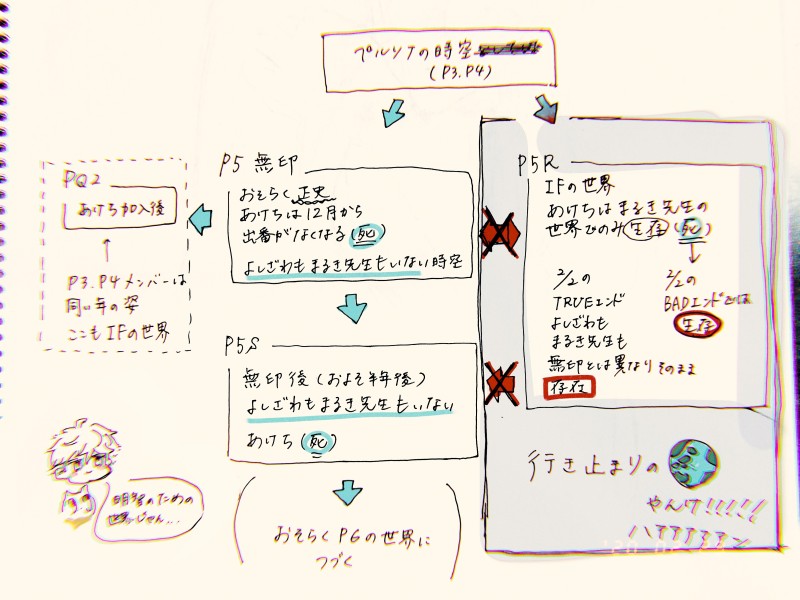 ペルソナの時空
(P3.P4)
P5 無印
おそらく正史
あけちは12月から
出番がなくなる(死)
よしざわもまるき先生もいない時空
PQ2
あけち加入後
P3.P4メンバーは
同い年の姿
ここもIFの世界
P5S
無印後(およそ半年後)
よしざわもまるき先生もいない
あけち(死)
おそらくP6の世界に
つづく
P5R
IFの世界
あけちはまるき先生の
世界でのみ生存(死)
2/2の
TRUEエンド
よしざわも
まるき先生も
無印とは異なりそのまま
存在
2/2の
BADエンドでは
生存
行き止まりの
やんけ!!!!!
ハアアアアアン
明智のための
世界じゃん…